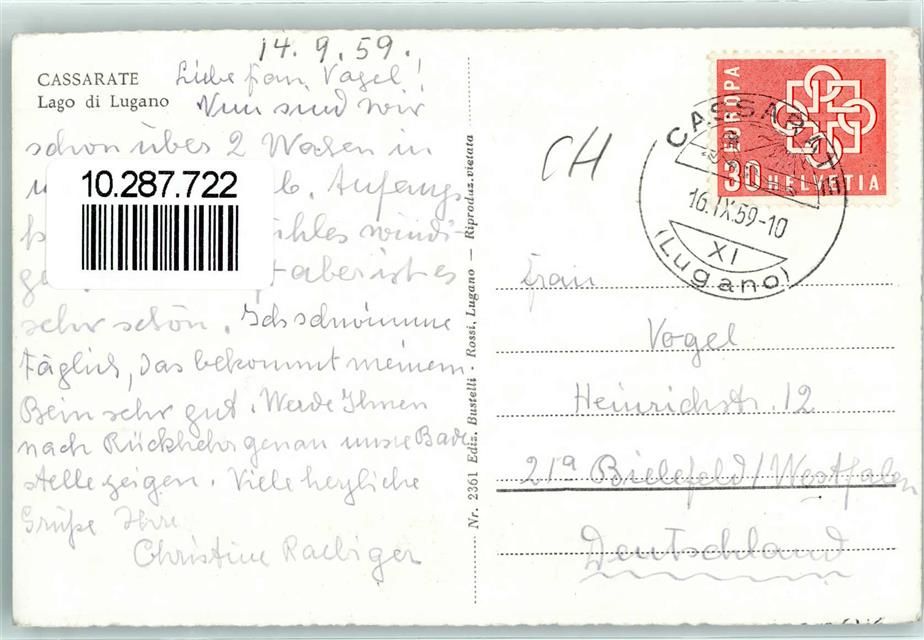 14.9.59.
CASSARATE
Lago di Lugano
Liebe Frau Vogel!
Nun sind wir
schon über 2 Wochen in
Anfangs
kühles windi-
aber ist es
sehr schön. Ich schwimme
täglich, das bekommt meinem
Bein sehr gut. Werde Ihnen
nach Rückkehr genau unsre Bade
stelle zeigen. Viele herzliche
Grüße Ihre
Christine Raebiger
10.287.722
Nr. 2361 Ediz. Bustelli - Rossi, Lugano — Riproduz. vietata
CH
EUROPA
30 HELVETIA
CASSARATE
16.IX.59-10
XI
(Lugano)
Frau
Vogel
Heinrichstr. 12
21a Bielefeld/Westfalen
Deutschland